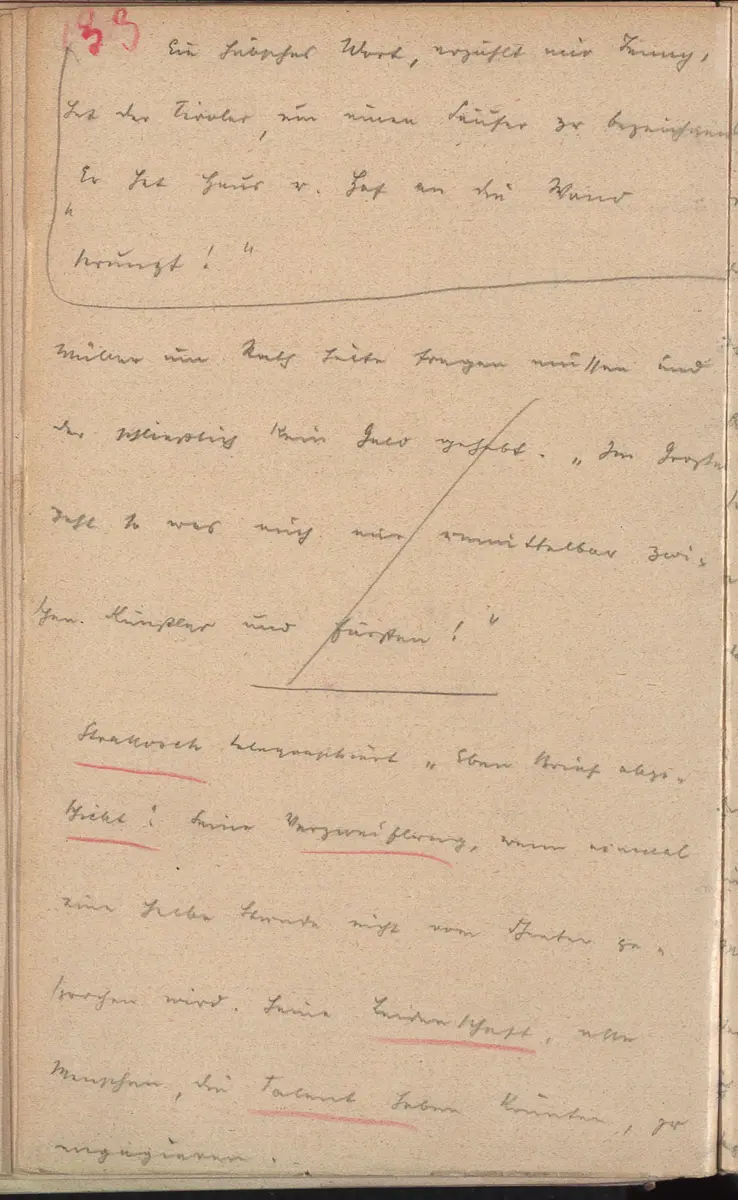 33
Ein hübsches Wort, erzählt mir Jenny,
hat der Tiroler, um einen Säufer zu bezeichnen
Er hat Haus u. Hof an die Wand
"
brunzt! "
um Rath hätte fragen müssen und
der schließlich kein Geld gehabt. „ Im Großen
geht so was auch nur unmittelbar zwi-
schen Künstler und Fürsten! "
Strakosch telegraphiert „ Eben Brief abge-
schickt". Seine Verzweiflung, wenn einmal
eine halbe Stunde nicht vom Theater ge-
sprochen wird. Seine Leidenschaft, alle
Menschen, die Talent haben könnten, zu
engagieren.